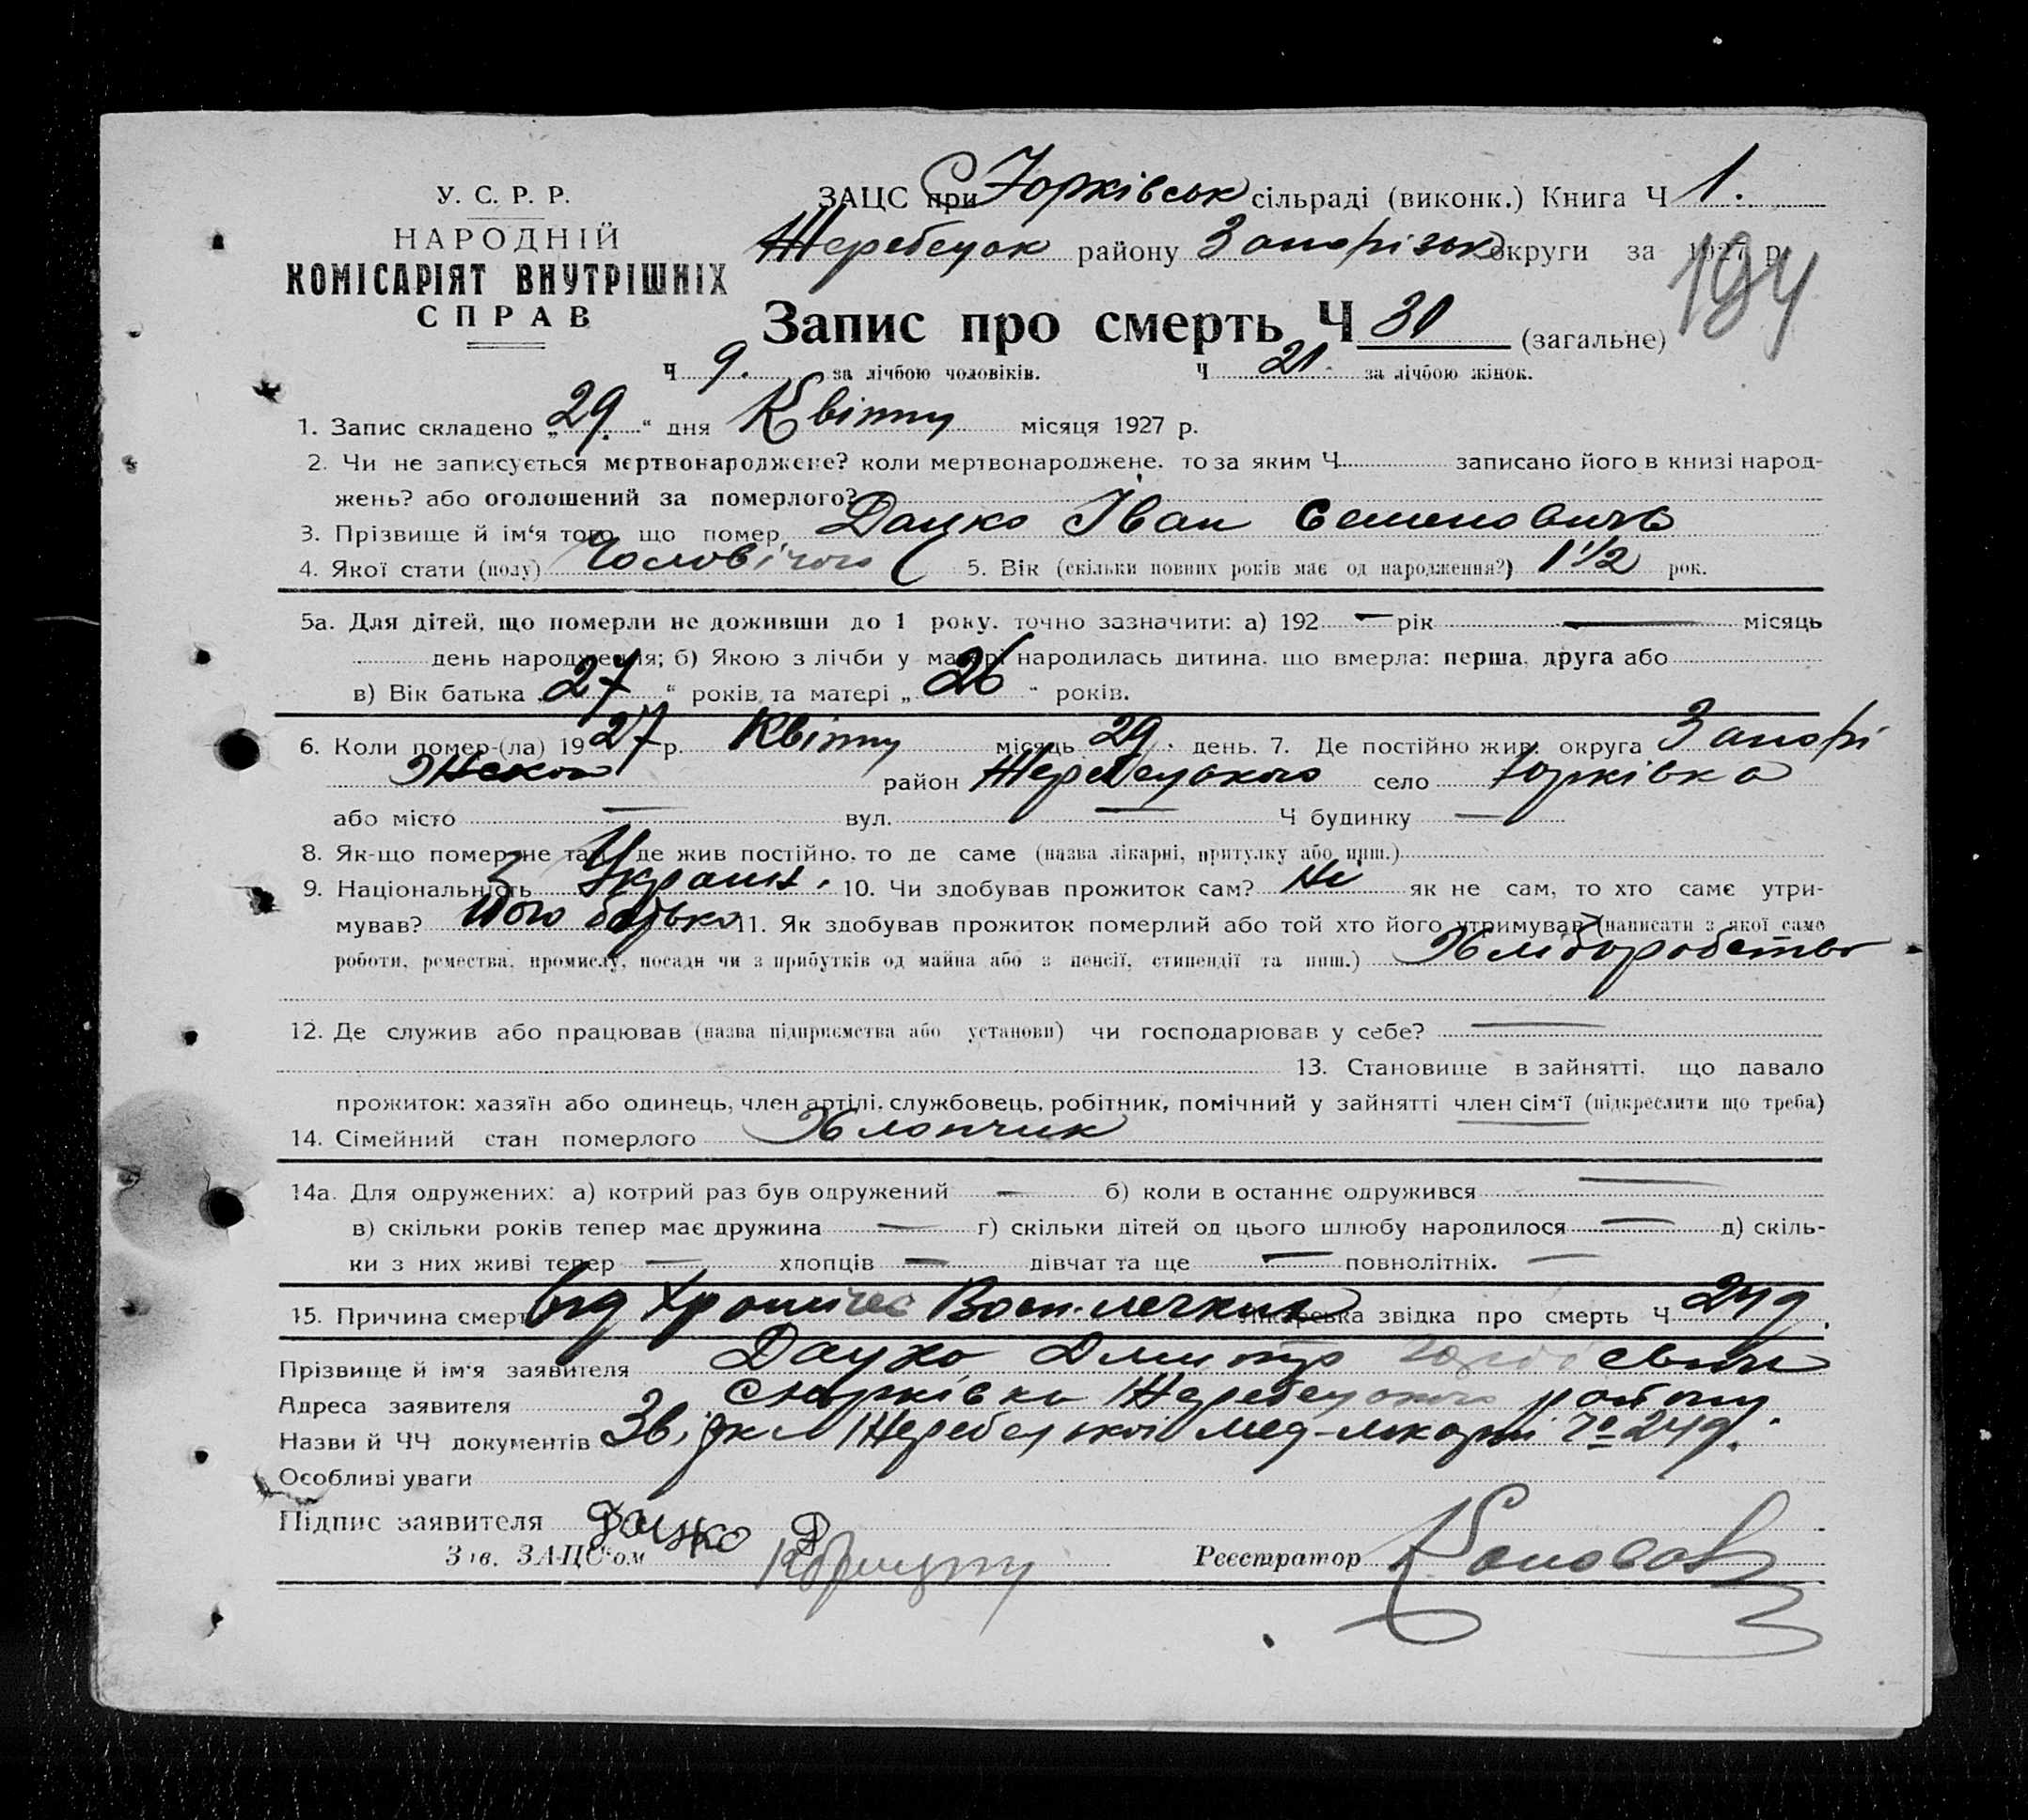 У. С. Р. Р.
НАРОДНІЙ
КОМІСАРІЯТ ВНУТРІШНІХ
СПРАВ
ЗАЦС при Юрківськ сільраді (виконк.) Книга Ч 1.
Жеребецьк району Запорізьк округи за 1927 р.
194
Запис про смерть Ч 30 (загальне)
Ч 9. за лічбою чоловіків. Ч 21. за лічбою жінок.
1. Запис складено „29.“ дня Квітну місяця 1927 р.
2. Чи не записується мертвонароджене? коли мертвонароджене, то за яким Ч записано його в книзі народ-
жень? або оголошений за померлого?
3. Прізвище й ім‘я того, що помер Дацко Іван Семенович
4. Якої стати (полу) Чоловічого 5. Вік (скільки повних років має од народження?) 1 1/2 рок.
5а. Для дітей, що померли не доживши до 1 року, точно зазначити: а) 192 — рік — місяць
день народження; б) Якою з лічби у матері народилась дитина, що вмерла: перша, друга або
в) Вік батька „27“ років та матері „26“ років.
6. Коли помер-(ла) 1927 р. Квітну місяць 29. день. 7. Де постійно жив: округа Запорі
район Жеребецького село Юрківка
або місто — вул. — Ч будинку —
8. Як-що помер не там, де жив постійно, то де саме (назва лікарні, притулку або инш.)
9. Національність Україн. 10. Чи здобував прожиток сам? Ні як не сам, то хто саме утри-
мував? його батько 11. Як здобував прожиток померлий або той хто його утримував (написати з якої саме
роботи, ремества, промислу, посади чи з прибутків од майна або з пенсії, стипендії та инш.) Хліборобство
12. Де служив або працював (назва підприємства або установи) чи господарював у себе? —
13. Становище в зайнятті, що давало
прожиток: хазяїн або одинець, член артілі, службовець, робітник, помічний у зайнятті член сім‘ї (підкреслити що треба)
14. Сімейний стан померлого Хлопчик
14а. Для одружених: а) котрий раз був одружений — б) коли в останнє одружився —
в) скільки років тепер має дружина — г) скільки дітей од цього шлюбу народилося — д) скіль-
ки з них живі тепер — хлопців — дівчат та ще — повнолітніх. —
15. Причина смерти від Хронічес Восп. легких Лікарська звідка про смерть Ч 249.
Прізвище й ім‘я заявителя Дацко Дмитро
Адреса заявителя с Юрківка Жеребецького району.
Назви й ЧЧ документів Звідка Жеребецької мед-лікарні № 249.
Особливі уваги
Підпис заявителя Дацко Д
Зав. ЗАЦС‘ом
Реєстратор